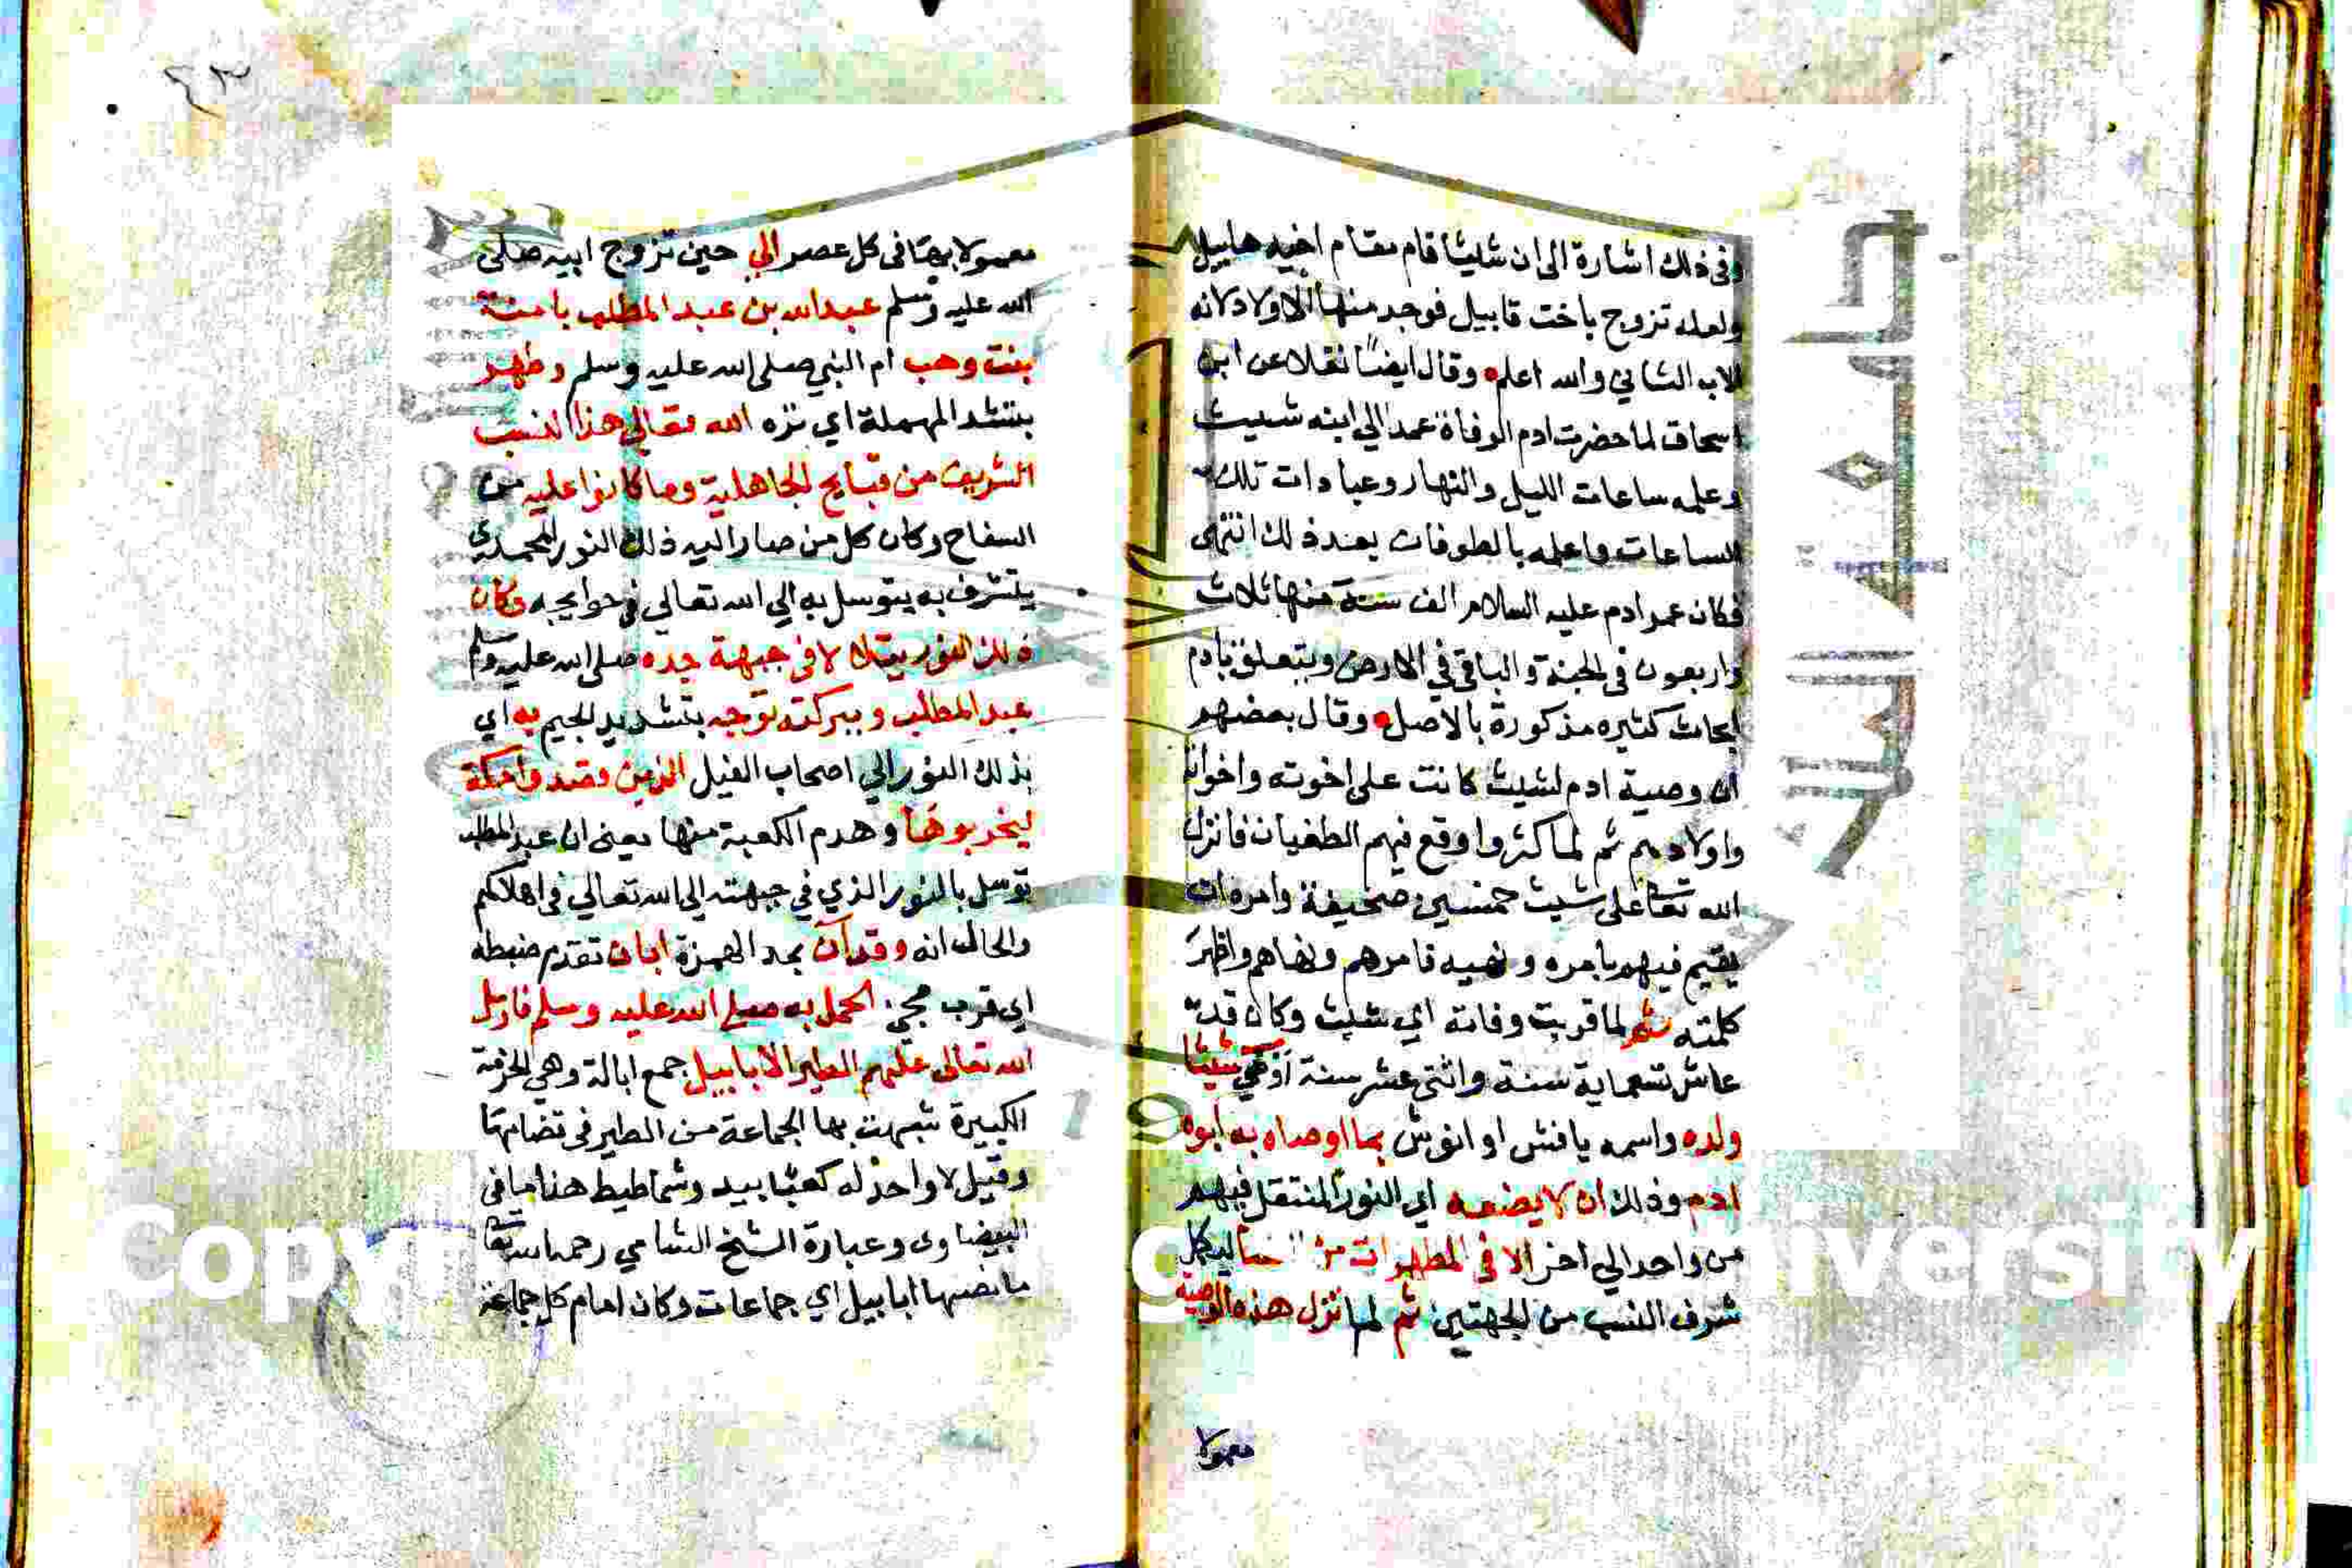 وفى ذلك اشارة الى ان شيثا قام مقام اخيه هابيل
ولعله تزوج باخت قابيل فوجد منها الاولاد لانه
الاب الثاني والله اعلم وقال ايضًا نقلا عن ابن
اسحاق لما حضرت ادم الوفاة عهد الي ابنه شيث
وعلمه ساعات الليل والنهار وعبادات تلك
الساعات واعلمه بالطوفات بعد ذلك انتهى
فكان عمر ادم عليه السلام الف سنة منها ثلاث
واربعون في الجنة والباقي في الارض ويتعلق بادم
ابحاث كثيره مذكورة بالاصل وقال بعضهم
ان وصية ادم لشيث كانت على اخوته واخواته
واولادهم ثم لما كثروا وقع فيهم الطغيان فانزل
الله تعا على شيث خمسين صحيفة وامره ان
يقيم فيهم بامره ونهيه فامرهم ونهاهم واظهر
كلمته ثم لما قربت وفاته اي شيث وكان قد
عاش تسعماية سنة واثنتى عشر سنة أوصي شيثا
ولده واسمه يافش او انوش بما اوصاه به أبوه
ادم وذلك ان لا يضعه اي النور المنتقل فيهم
من واحد الي اخر الا في المطهرات من ليكمل
شرف النسب من الجهتين ثم لما نزل هذه الوصية
معمولا
٤٣
معمولا بها فى كل عصر الي حين تزوج ابيه صلى
الله عليه وسلم عبدالله بن عبد المطلب بامنة
بنت وهب ام النبي صلى الله عليه وسلم وطهر
بتشد المهملة اي نزه الله تعالي هذا النسب
الشريف من قبايح الجاهلية وما كانوا عليه من
السفاح وكان كل من صار اليه ذلك النور المحمدي
يتشرف به يتوسل به الي الله تعالي في حوايجه وكان
ذلك النور يتلالا فى جبهة جده صلى الله عليه وسلم
عبد المطلب وببركته توجه بتشديد الجيم به اي
بذلك النور الي اصحاب الفيل الذين قصدوا مكة
ليخربوها وهدم الكعبة منها يعنى ان عبد المطلب
توسل بالنور الذي في جبهته الي الله تعالي في اهلاكهم
والحال انه وقد آن بمد الهمزة ابان تقدم ضبطه
اي قرب مجي الحمل به صلى الله عليه وسلم فارسل
الله تعالى عليهم الطير الابابيل جمع ابالة وهي الحزمة
الكبيرة شبهت بها الجماعة من الطير فى تضامها
وقيل لا واحد له كعبابيد وشماطيط هذا ما في
البيضاوى وعبارة الشيخ الشامي رحمه الله تعا
ما نصها ابابيل اي جماعات وكان امام كل جماعة